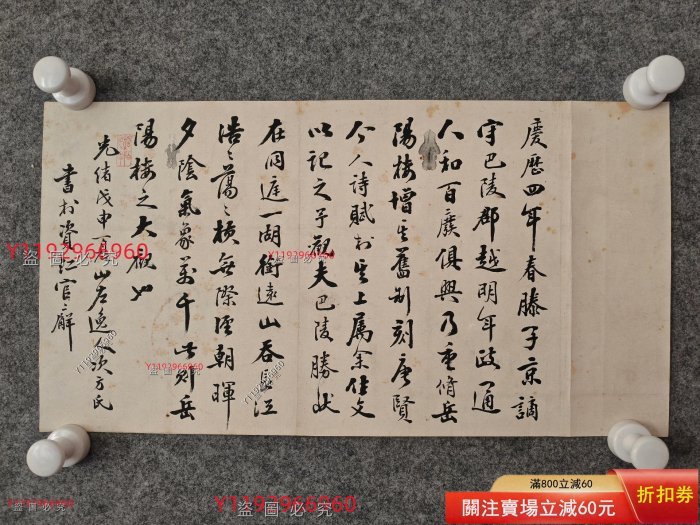 慶歷四年春滕子京謫
守巴陵郡越明年政通
人和百廢俱興乃重脩岳
陽樓增其舊制刻唐賢
今人詩賦於其上屬余作文
以記之予觀夫巴陵勝狀
在洞庭一湖銜遠山吞長江
浩〻蕩〻橫無際涯朝暉
夕陰氣象萬千此則岳
陽樓之大觀也
光緒戊申夏山左逸人次方氏
書於官廨
Y1192966960
盜圖必究
Y1192966960
盜圖必究
Y1192966960
盜圖必究
Y1192966960
盜圖必究
Y1192966960
盜圖必究
Y1192966960
盜圖必究
滿800立減60
關注賣場立減60元
折扣券